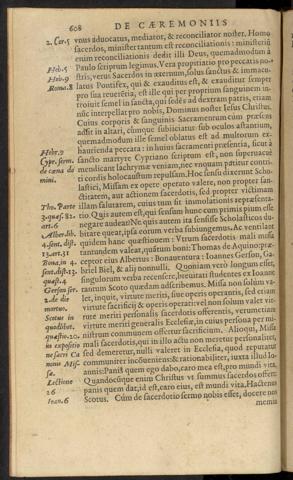 608
DE CÆREMONIIS
2. Cor. 5 vnus aduocatus, mediator, & reconciliator noster. Homo
sacerdos, minister tantum est reconciliationis: ministeriũ
enim reconciliationis dedit illi Deus, quemadmodum à
Paulo scriptum legimus. Vera propitiatio pro peccatis no-
Heb. 5 stris, verus Sacerdos in æternum, solus sanctus & immacu-
Heb. 9 latus Pontifex, qui & exauditus est, & exauditur semper
Roma. 8 pro sua reuerẽtia, est ille qui per proprium sanguinem in-
troiuit semel in sancta, qui sedẽs ad dextram patris, etiam
nũc interpellat pro nobis, Dominus noster Iesus Christus.
Cuius corporis & sanguinis Sacramentum cùm præsens
assit in altari, cúmque subiiciatur sub oculos astantium,
quemadmodum ille semel oblatus est ad multorum ex-
Hebr. 9 haurienda peccata: in huius sacramenti præsentia, sicut à
Cypr. serm. sancto martyre Cypriano scriptum est, non superuacuè
de cœna do mendicant lachrymæ veniam, nec vnquam patitur contri-
mini. ti cordis holocaustum repulsam. Hoc sensu dixerunt Scho-
lastici, Missam ex opere operato valere, non propter san-
ctitatem, aut actionem sacerdotis, sed propter victimam
Tho. Parte illam salutarem, cuius tum sit immolationis repræsenta-
3. quæst. 82. tio. Quis autem est, qui sensum hunc cum primis pium esse
art. 6 negare audeat? Ne quis autem ita sensisse Scholasticos du-
Alber. di- bitare queat, ipsa eorum verba subiungemus. Ac ventilant
4. sent. dist. quidem hanc quæstionem: Vtrum sacerdotis mali missa
13. art. 31 tantundem valeat, quātum boni: Thomas de Aquino: præ-
Bona. in 4. ceptor eius Albertus: Bonauentura: Ioannes Gerson, Ga-
sent. dist. 13. briel Biel, & alij nonnulli. Quoniam verò longum esset,
quæst. 4 singulorum verba recensere, breuitati studentes ex Ioanne
Gerson ser. tantùm Scoto quædam adscribemus. Missa non solùm va-
2. de die let, inquit, virtute meriti, siue operis operantis, sed etiam
mortuo. virtute sacrificij & operis operati: vel non solùm valet vir-
Scotus in tute meriti personalis sacerdotis offerentis, verumetiam
quodlibet. virtute meriti generalis Ecclesiæ, in cuius persona per mi-
quæstio. 20. nistrum communem offertur sacrificium. Alioqui, Missa
in expositio mali sacerdotis, qui in illo actu non meretur personaliter,
ne sacri Ca sed demeretur, nulli valeret in Ecclesia, quod reputatur
nonis Mis- communiter incõueniens: & rationabiliter, iuxta illud Io-
sæ. annis: Panis quem ego dabo, caro mea est, pro mundi vita.
Lectione Quandocúnque enim Christus vt summus sacerdos offert:
26 panis quem dat, id est, caro eius, est mundi vita. Hactenus
Ioan. 6 Scotus. Cùm de sacerdotio sermo nobis esset, docere nos
memi-